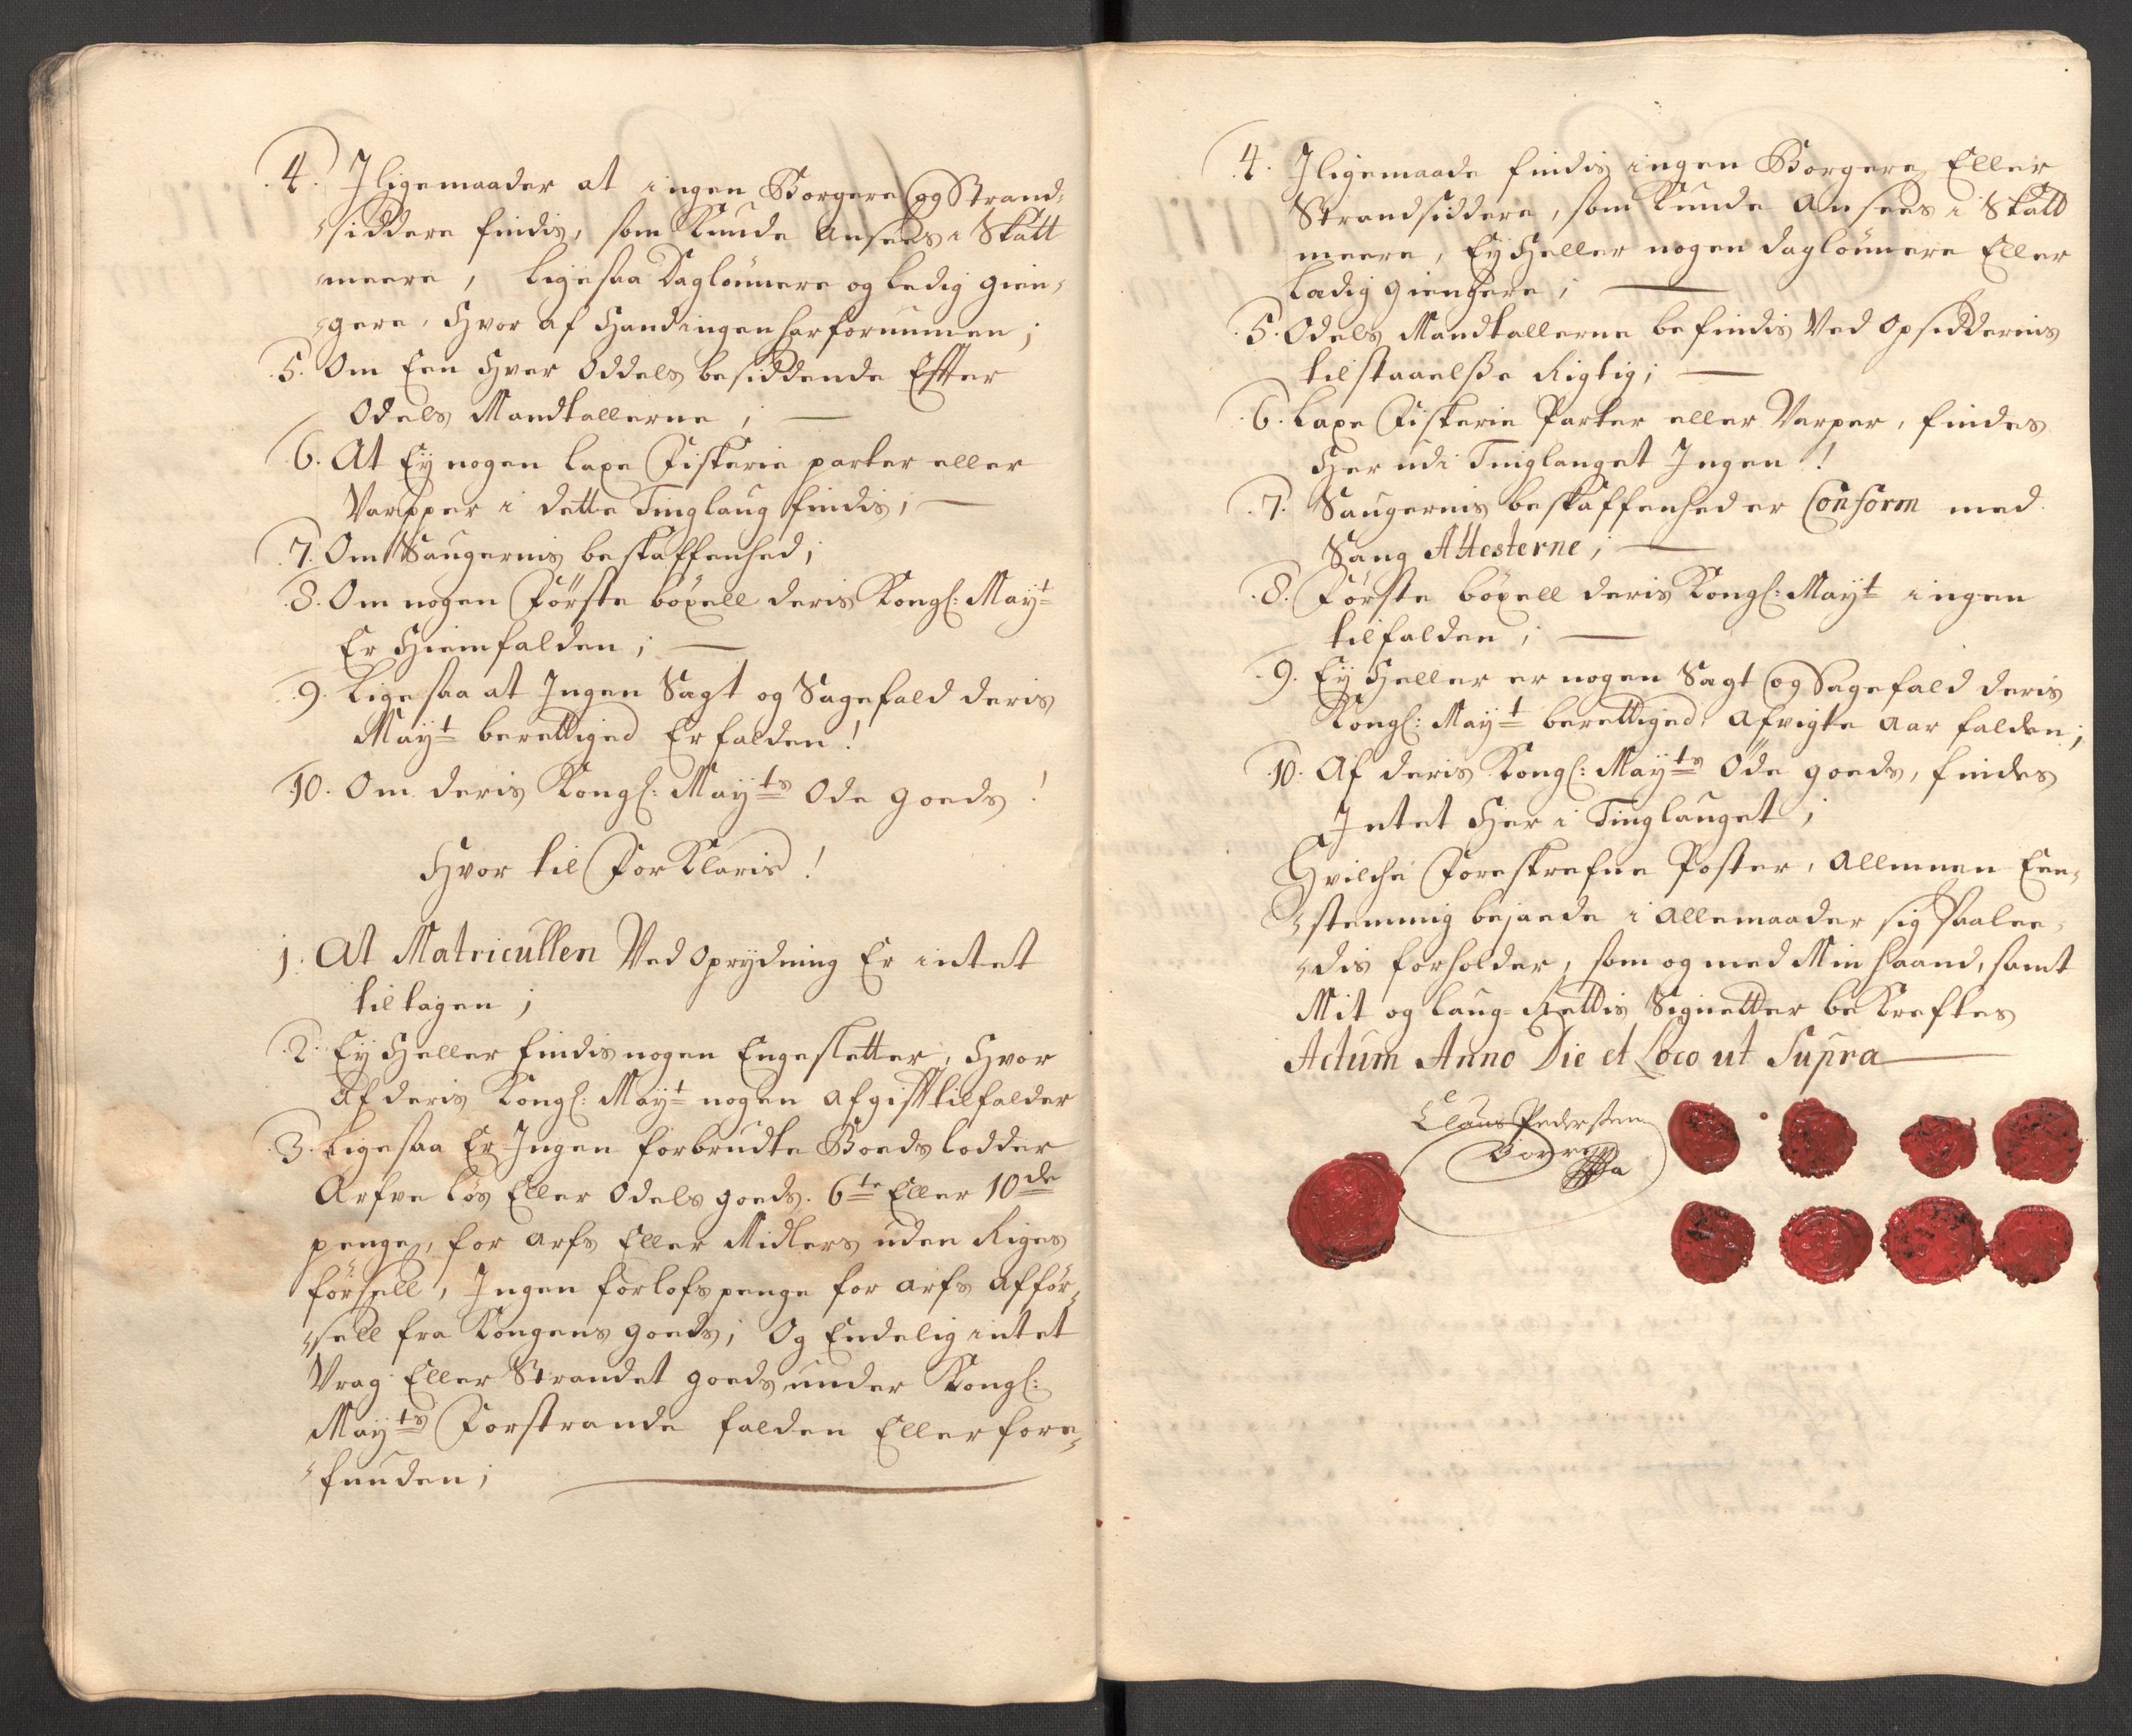 4. Jligemaader at ingen Borgere og Strand-
siddere findis, som kunde Ansees i Skatt
meere, ligesaa Daglönnere og ledig gien-
gere, Hvor af Hand ingen har fornummen;
5. Om Een Hver Oddels besiddende Efter
Odels Mandtallerne;
6. At Ey nogen laxe Fiskerie parter eller
Varpper i dette Tinglaug findis;
7. Om Saugernis beskaffenhed;
8. Om nogen Förste böxell deris Kongl: Mayt
Er Hiemfalden;
9. Ligesaa at Ingen Sagt og Sagefald deris
Mayt berettiged Er falden!
10. Om deris Kongl: Mayts Öde goeds!
Hvor til Forklaris!
1. At Matricullen Ved Oprydning Er intet
tiltagen;
2. Ey Heller findis nogen Engesletter, Hvor
Af deris Kongl: Mayt nogen Afgifft tilfalder
3. Ligesaa Er Ingen forbrudte Boeds lodder
Arfve lös Eller Odels goeds. 6te Eller 10de
penge, for Arfs Eller Midlers uden Riges
försell, Ingen forlofs penge for Arfs afför-
sell fra Kongens goeds; Og Endelig intet
Vrag Eller Strandet goeds under Kongl:
Mayts Forstrande falden Eller fore-
funden;
4. Jligemaade findis ingen Borgere Eller
Strandsiddere, som kunde Ansees i Skatt
meere, Ey Heller nogen daglönnere Eller
ladig giengere;
5. Odels Mandtallerne befindis Ved Opsiddernis
tilstaaelsse Rigtig;
6. Laxe Fiskerie Parter eller Varper, findes
Her udi Tinglauget Ingen!
7. Saugernis beskaffenhed er Conform med
Saug Attesterne;
8. Förste böxell deris Kongl: Mayt ingen
tilfalden;
9. Ey Heller er nogen Sagt og Sagefald deris
Kongl: Mayt berettiged Afvigte Aar falden;
10. Af deris Kongl: Mayts Öde goeds, findes
Intet Her i Tinglauget;
Hvilche Foreskrefne Poster, Allmuen Een-
stemmig bejaede i Allemaader sig saalee-
dis forholder, som og med Min Haand, samt
Mit og Laug-Rettis Signetter bekreftes
Actum Anno Die et Loco ut Supra
Claus Pedersen